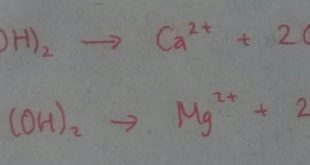 OH)₂ → Ca²⁺ + 2
(OH)₂ → Mg²⁺ + 2